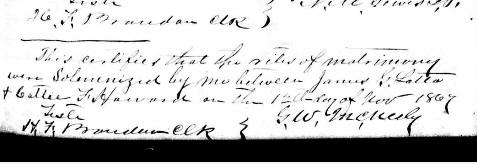 Teste
H. F. Brandon Clk }
This certifies that the rites of matrimony
were Solemnized by me between James G. Latta
& Callie F. Howard on the 12th day of Nov 1867
Teste
H. F. Brandon Clk } G. W. McNeely